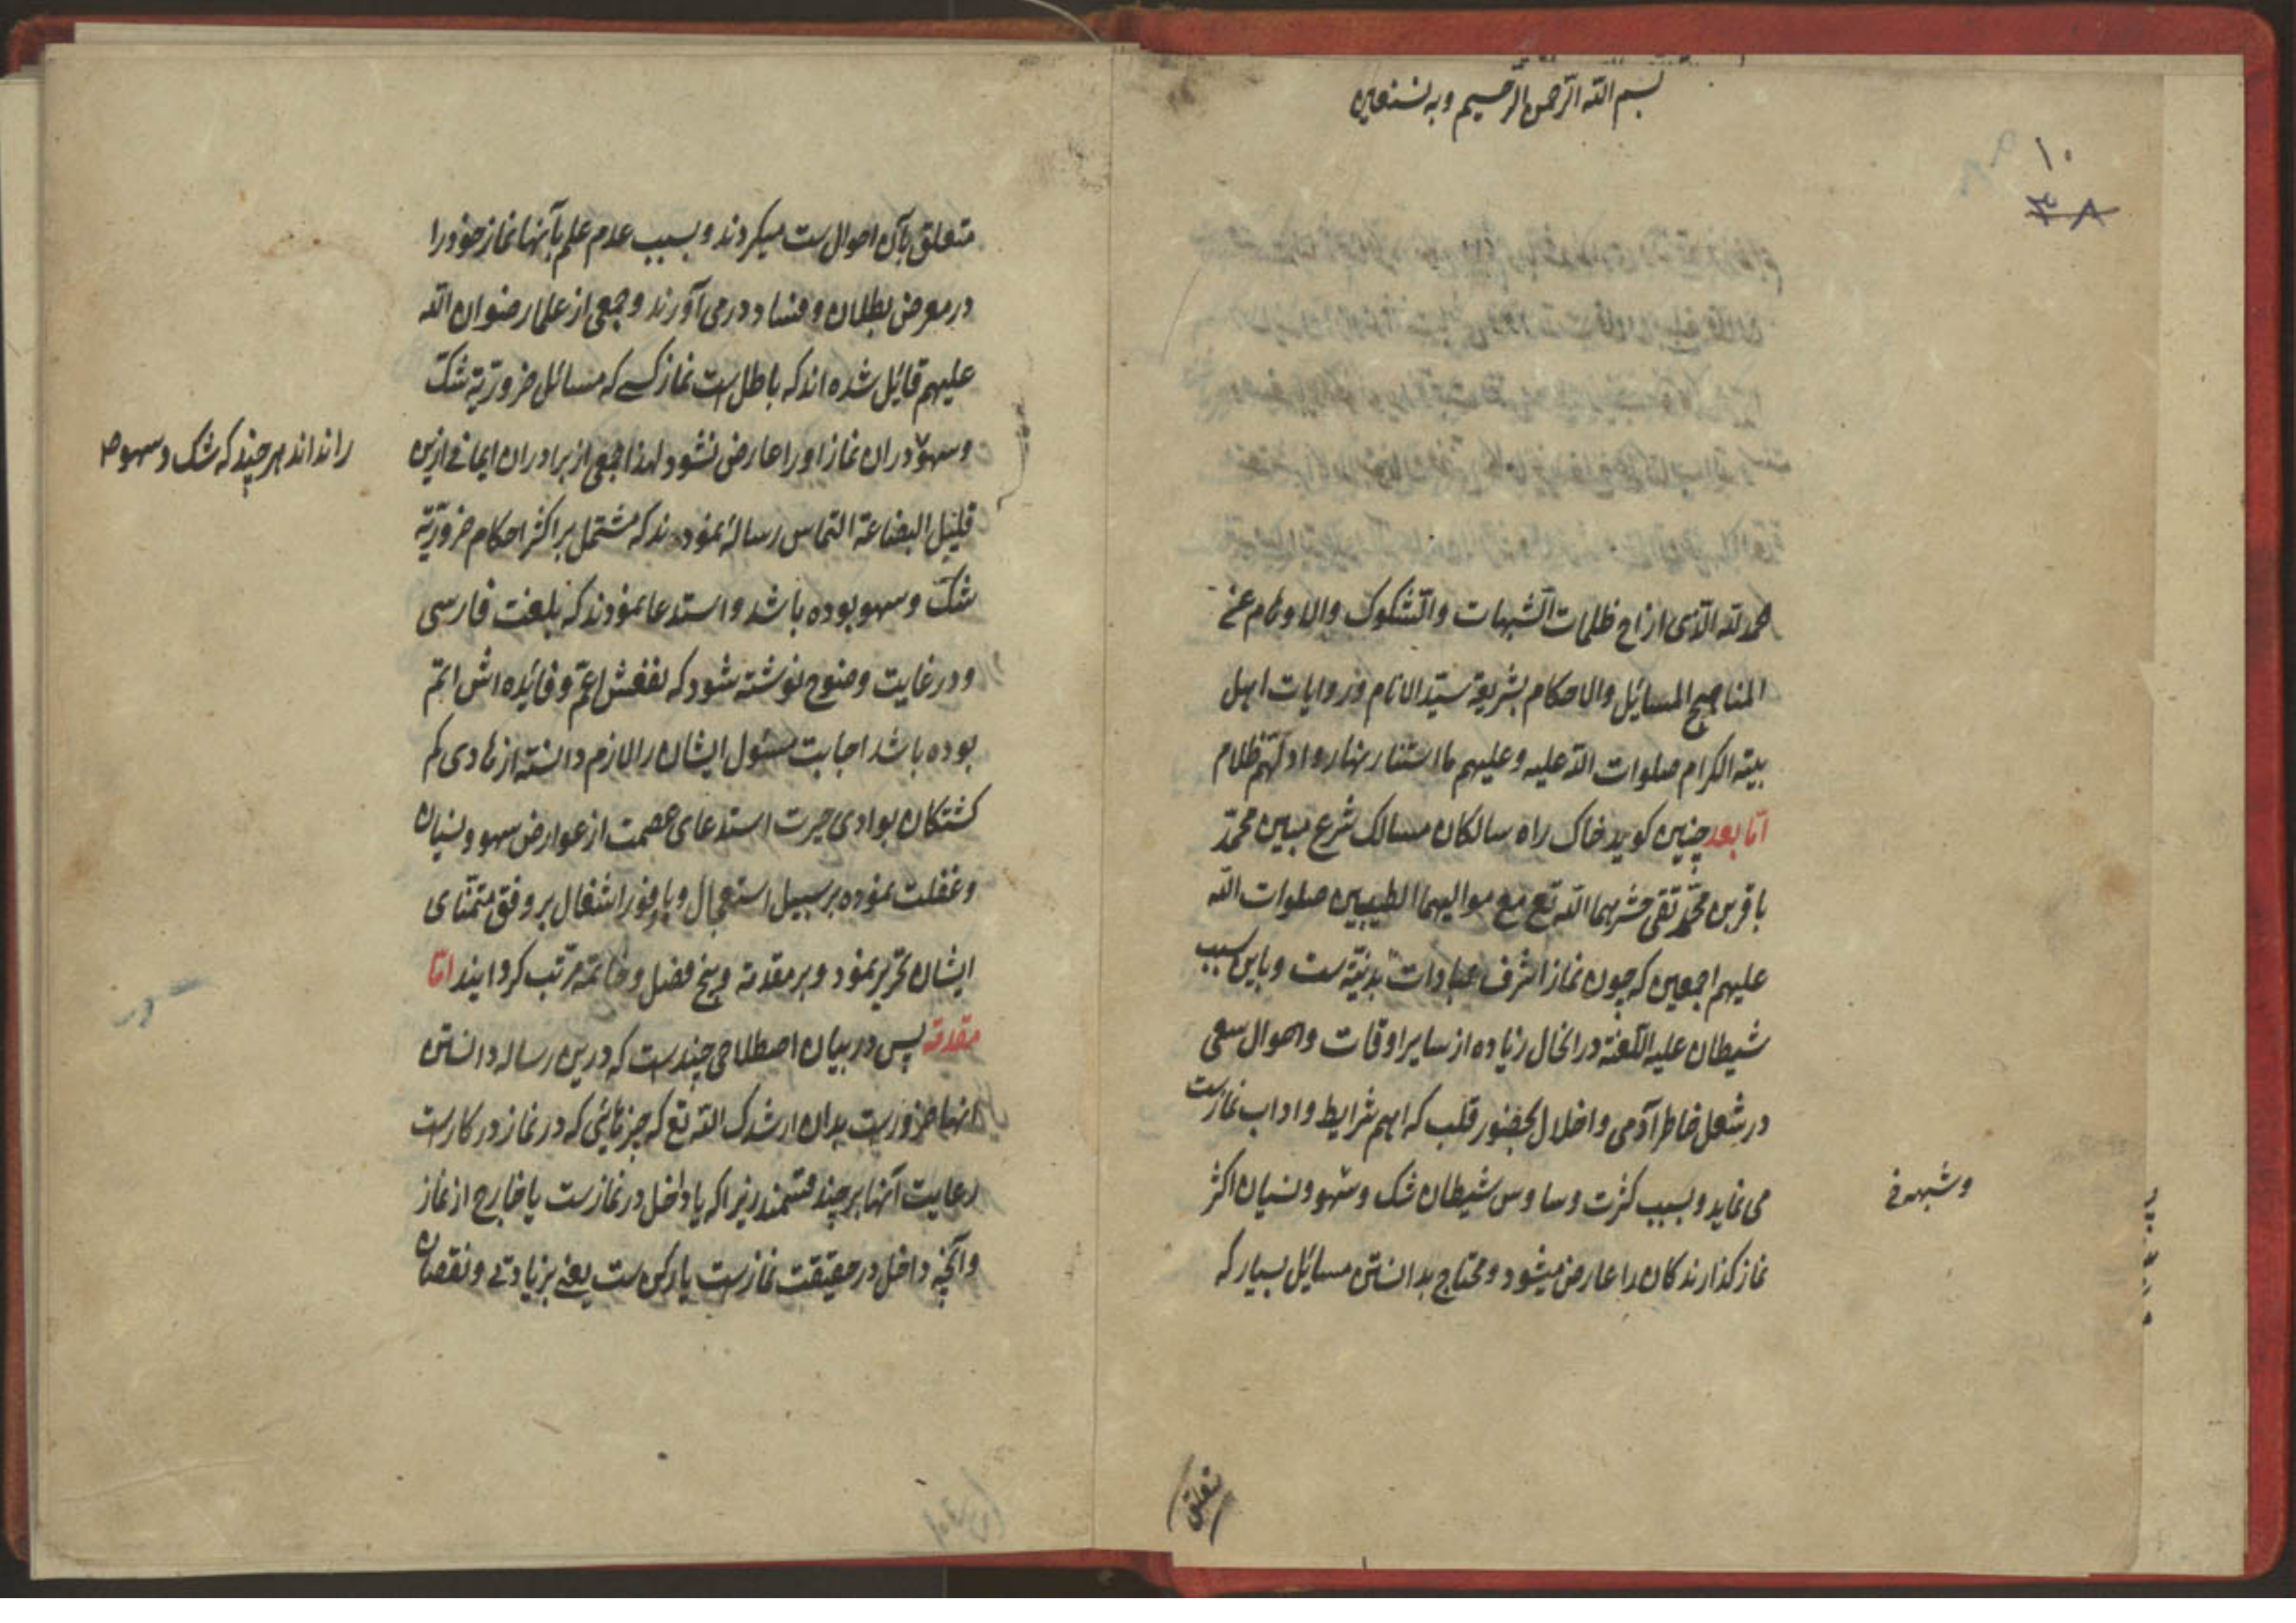 بسم الله الرحمن الرحیم وبه نستعین
١٠
الحمد لله الذی ازاح ظلمات الشبهات والشکوک والاوهام عن
المناهج المسائل والاحکام بشریعة سید الانام وروایات اهل
بیته الکرام صلوات الله علیه وعلیهم ما استنار بنهار ظلام
اما بعد چنین کوید خاک راه سالکان مسالک شرع مبین محمد
باقر بن محمد تقی حشرهما الله تع مع موالیهما الطیبین صلوات الله
علیهم اجمعین که چون نماز اشرف عبادات بدنیة ست وباین سبب
شیطان علیه اللعنة درانحال زیاده از سایر اوقات واحوال سعی
در شغل خاطر آدمی واخلال بحضور قلب که اهم شرایط واداب نمازست
می نماید وبسبب کثرت وساوس شیطان شک وسهو ونسیان اکثر
وشبهه
نماز کذارندکان را عارض میشود ومحتاج بدانستن مسائل بسیار که
متعلق
متعلق بآن احوال ست میکردند وبسبب عدم علم بآنها نماز خود را
در معرض بطلان وفساد در می آورند وجمعی از علما رضوان الله
علیهم قائل شده اند که باطل ست نماز کسی که مسائل ضروریة شک
وسهو دران نماز او را عارض نشود لهذا جمعی از برادران ایمانی ازین
را نداند هر چند که شک وسهو
قلیل البضاعة التماس رسالهٔ نمودند که مشتمل بر اکثر احکام ضروریة
شک وسهو بوده باشد واستدعا نمودند که بلغت فارسی
ودر غایت وضوح نوشته شود که نفعش اعم وفائده اش اتم
بوده باشد اجابت مسئول ایشان را لازم دانسته از هادی کم
کشتکان بوادی حیرت استدعای عصمت از عوارض سهو ونسیان
وغفلت نموده بر سبیل استعجال وبا وفور اشغال بر وفق متمنای
ایشان تحریر نمود وبر مقدمه وپنج فصل وخاتمه مرتب کردانید اما
مقدمه پس در بیان اصطلاحی چندست که درین رساله دانستن
انها ضرورست بدان ارشدک الله تع که چیزهائی که در نماز در کارست
رعایت آنها بر چند قسمند زیرا که یا داخل در نمازست یا خارج از نماز
وآنچه داخل در حقیقت نمازست یا رکن ست یعنی بزیادتی ونقصان